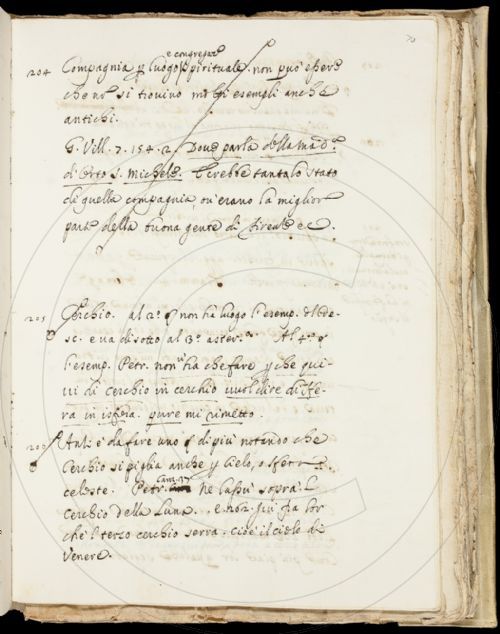 70
e congregaz.ne
204 Compagnia p luogo spirituale. non può essere
che nõ si trovino molti esempli anche
antichi.
G. Vill. 7. 154. 2. Dove parla della Mad.a
di Orto S. Michele. Crebbe tanto lo stato
di quella compagnia, ov'erano la miglior
parte della buona gente di Firenze ec.
205 Cerchio. al 2.o § non ha luogo l'esemp.
sc. e va di sotto al 3.o aster. Al 4.o §
l'esemp. Petr. non v'ha che fare p che qui-
vi di cerchio in cerchio vuol dire di
in pure mi rimetto.
Anzi è da fare uno § di più notando che
Cerchio si piglia anche p Cielo, o
celeste. Petr. canz. 17 Nè lassù sopra il
cerchio della Luna. e fra lor
che 'l terzo cerchio serra. cioè il cielo di
Venere.